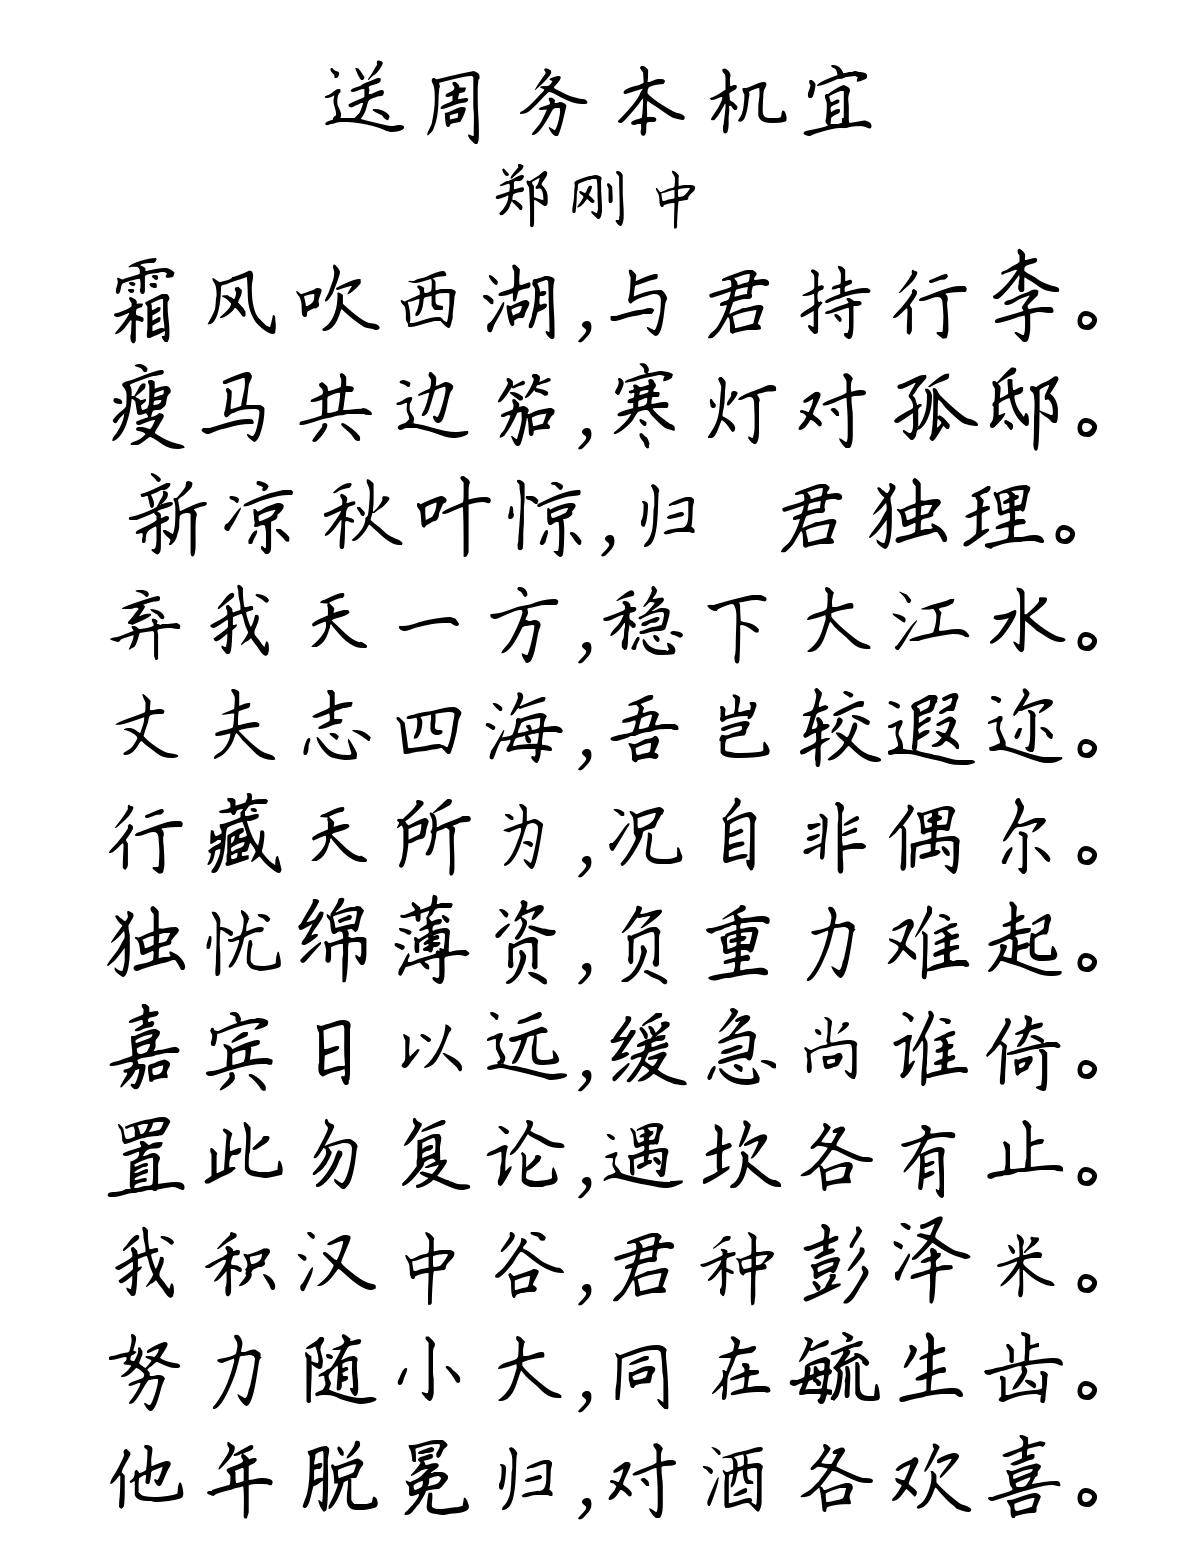 送周务本机宜
郑刚中
霜风吹西湖,与君持行李。
瘦马共边笳,寒灯对孤邸。
新凉秋叶惊,归 君独理。
弃我天一方,稳下大江水。
丈夫志四海,吾岂较遐迩。
行藏天所为,况自非偶尔。
独忧绵薄资,负重力难起。
嘉宾日以远,缓急尚谁倚。
置此勿复论,遇坎各有止。
我积汉中谷,君种彭泽米。
努力随小大,同在毓生齿。
他年脱冕归,对酒各欢喜。